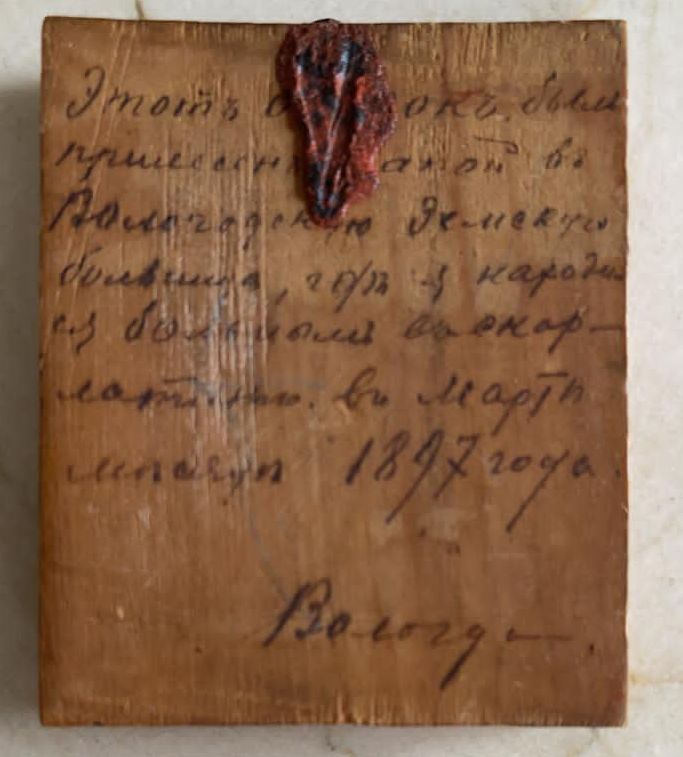 Этотъ о окъ былъ
принесенъ мамой въ
Вологодскую Земскую
больницу, гдѣ я находи-
ся больнымъ въ скар-
латиною въ Мартѣ
мѣсяцѣ 1897 года.
Вологда.